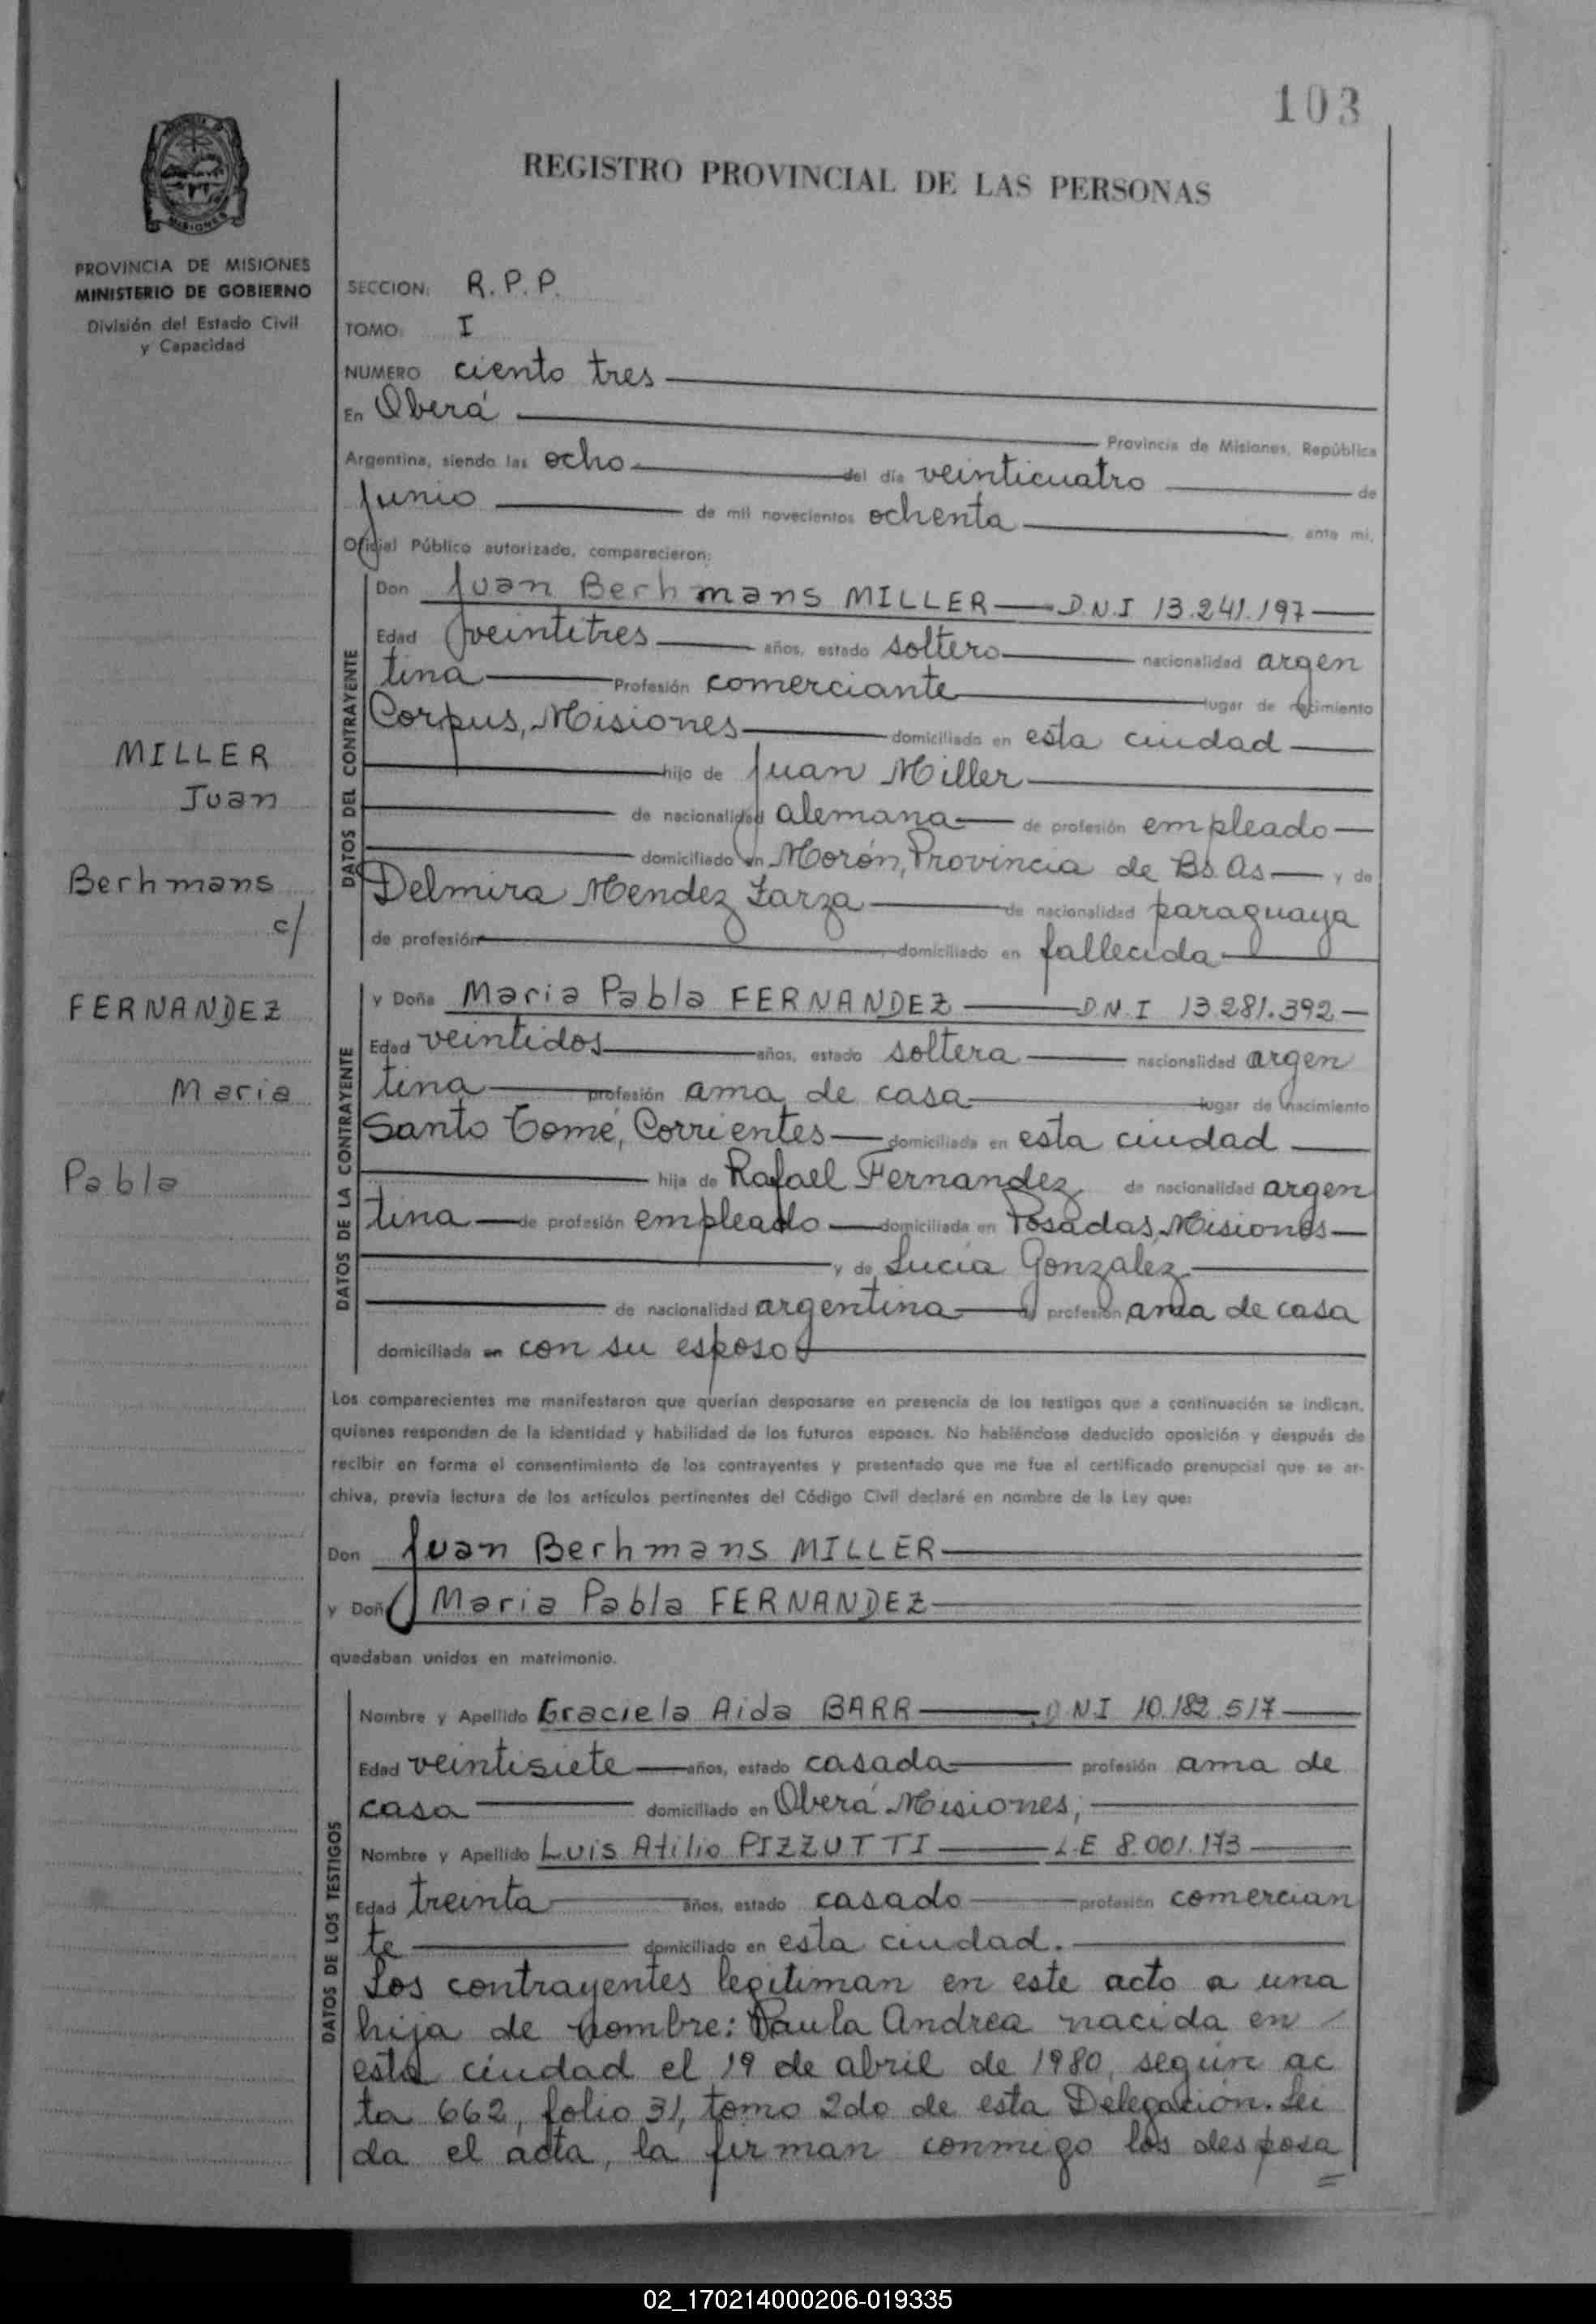 103
REGISTRO PROVINCIAL DE LAS PERSONAS
MISIONES
PROVINCIA DE MISIONES
MINISTERIO DE GOBIERNO
División del Estado Civil
y Capacidad
MILLER
Juan
Berhmans
c/
FERNANDEZ
Maria
Pabla
SECCION: R. P. P.
TOMO: I
NUMERO ciento tres
En Oberá Provincia de Misiones, República
Argentina, siendo las ocho del día veinticuatro de
Junio de mil novecientos ochenta, ante mi,
Oficial Público autorizado, comparecieron:
DATOS DEL CONTRAYENTE
Don Juan Berhmans MILLER D.N.I 13.241.197
Edad veintitres años, estado soltero nacionalidad argen
tina Profesión comerciante lugar de nacimiento
Corpus, Misiones domiciliado en esta ciudad
hijo de Juan Miller
de nacionalidad alemana de profesión empleado
domiciliado en Morón, Provincia de Bs As y de
Delmira Mendez Zarza de nacionalidad paraguaya
de profesión , domiciliado en fallecida
DATOS DE LA CONTRAYENTE
y Doña Maria Pabla FERNANDEZ D.N.I 13.281.392
Edad veintidos años, estado soltera nacionalidad argen
tina profesión ama de casa lugar de nacimiento
Santo Tomé, Corrientes domiciliada en esta ciudad
hija de Rafael Fernandez de nacionalidad argen
tina de profesión empleado domiciliada en Posadas, Misiones
y de Lucia Gonzalez
de nacionalidad argentina de profesión ama de casa
domiciliada en con su esposo
Los comparecientes me manifestaron que querían desposarse en presencia de los testigos que a continuación se indican,
quienes responden de la identidad y habilidad de los futuros esposos. No habiéndose deducido oposición y después de
recibir en forma el consentimiento de los contrayentes y presentado que me fue el certificado prenupcial que se ar-
chiva, previa lectura de los artículos pertinentes del Código Civil declaré en nombre de la Ley que:
Don Juan Berhmans MILLER
y Doña Maria Pabla FERNANDEZ
quedaban unidos en matrimonio.
DATOS DE LOS TESTIGOS
Nombre y Apellido Graciela Aida BARR D.N.I 10.182.517
Edad veintisiete años, estado casada profesión ama de
casa domiciliado en Oberá Misiones,
Nombre y Apellido Luis Atilio PIZZUTTI L.E 8.001.173
Edad treinta años, estado casado profesión comercian
te domiciliado en esta ciudad.
Los contrayentes legitiman en este acto a una
hija de nombre: Paula Andrea nacida en
esta ciudad el 19 de abril de 1980, según ac
ta 662, folio 31, tomo 2do de esta Delegación. Lei
da el acta, la firman conmigo los desposa
02_170214000206-019335